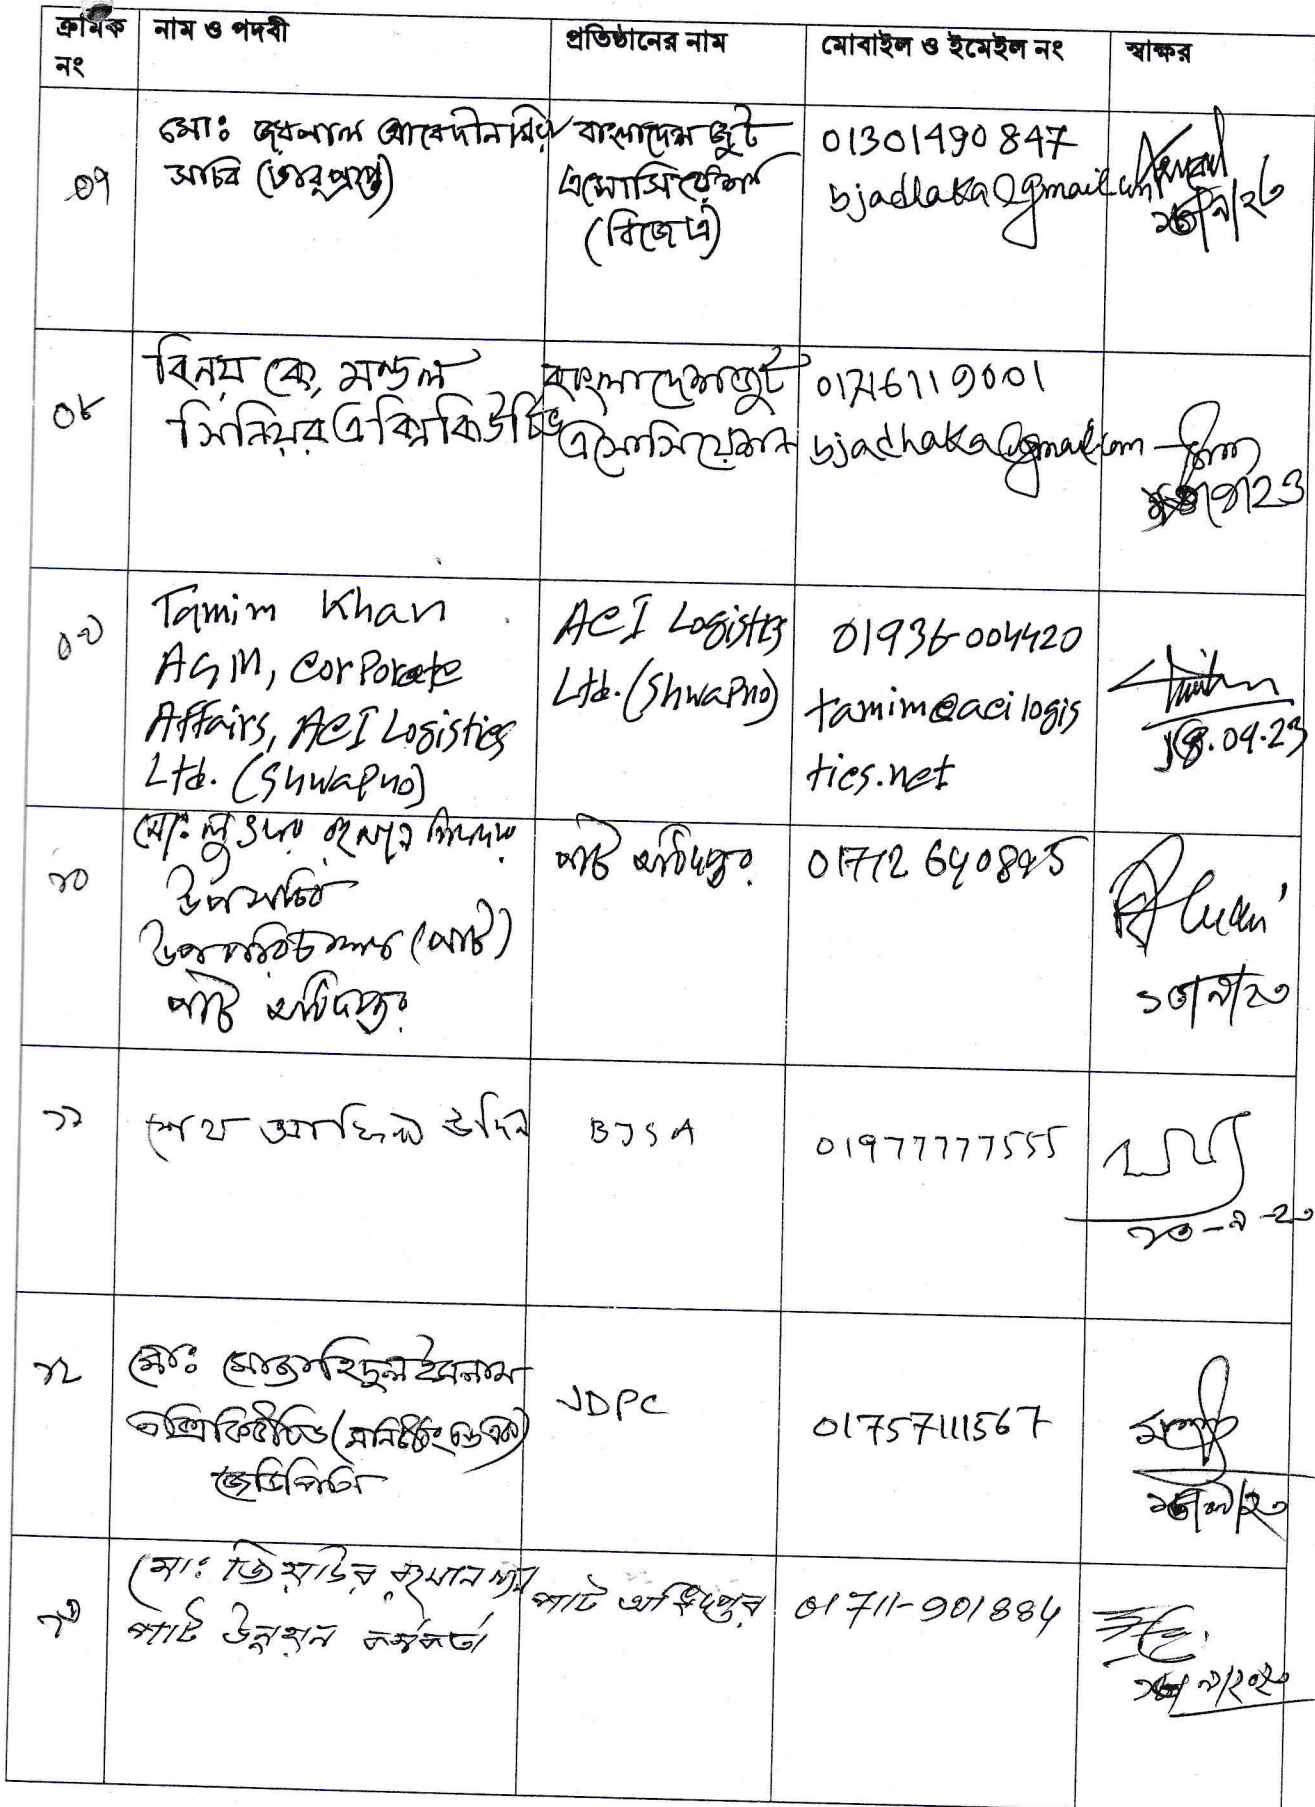 ক্রমিক নং	নাম ও পদবী	প্রতিষ্ঠানের নাম	মোবাইল ও ইমেইল নং	স্বাক্ষর
০৭
মোঃ জয়নাল আবেদীন মিয়া
সচিব (ভারপ্রাপ্ত)
বাংলাদেশ জুট
এসোসিয়েশন
(বিজেএ)
01301490847
bjadhaka@gmail.com
০৮
বিনয় কে, মন্ডল
সিনিয়র এক্সিকিউটিভ
বাংলাদেশ জুট
এসোসিয়েশন
01716119001
bjadhaka@gmail.com
০৯
Tamim Khan
AGM, Corporate
Affairs, ACI Logistics
Ltd. (Shwapno)
ACI Logistics
Ltd. (Shwapno)
01936-004420
tamim@acilogis
tics.net
১০
মোঃ
উপসচিব
উপপরিচালক (পাট)
পাট অধিদপ্তর
পাট অধিদপ্তর
01712
১১
শেখ আফিল উদ্দিন
BJSA
01977777555
১২
মোঃ মোজাহিদুল ইসলাম
এক্সিকিউটিভ
জেডিপিসি
JDPC
01757111567
১৩
মোঃ জিয়াউর রহমান খান
পাট উন্নয়ন কর্মকর্তা
পাট অধিদপ্তর
01711-901884